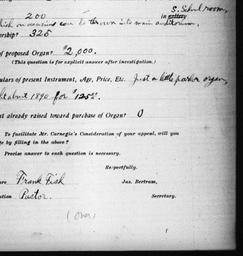 200 in gallery S. School room,
which on occasions can be thrown into main auditorium.
ership? 325
of proposed Organ? $2,000.
(This question is for explicit answer after investigation.)
ulars of present Instrument, Age, Price, Etc. Just a little parlor organ,
about 1890. for $125.
nt already raised toward purchase of Organ? 0
To facilitate Mr. Carnegie's Consideration of your appeal, will you
e by filling in the above?
Precise answer to each question is necessary.
Respectfully,
Frank Fish Jas. Bertram,
ation Pastor. Secretary.
(over)